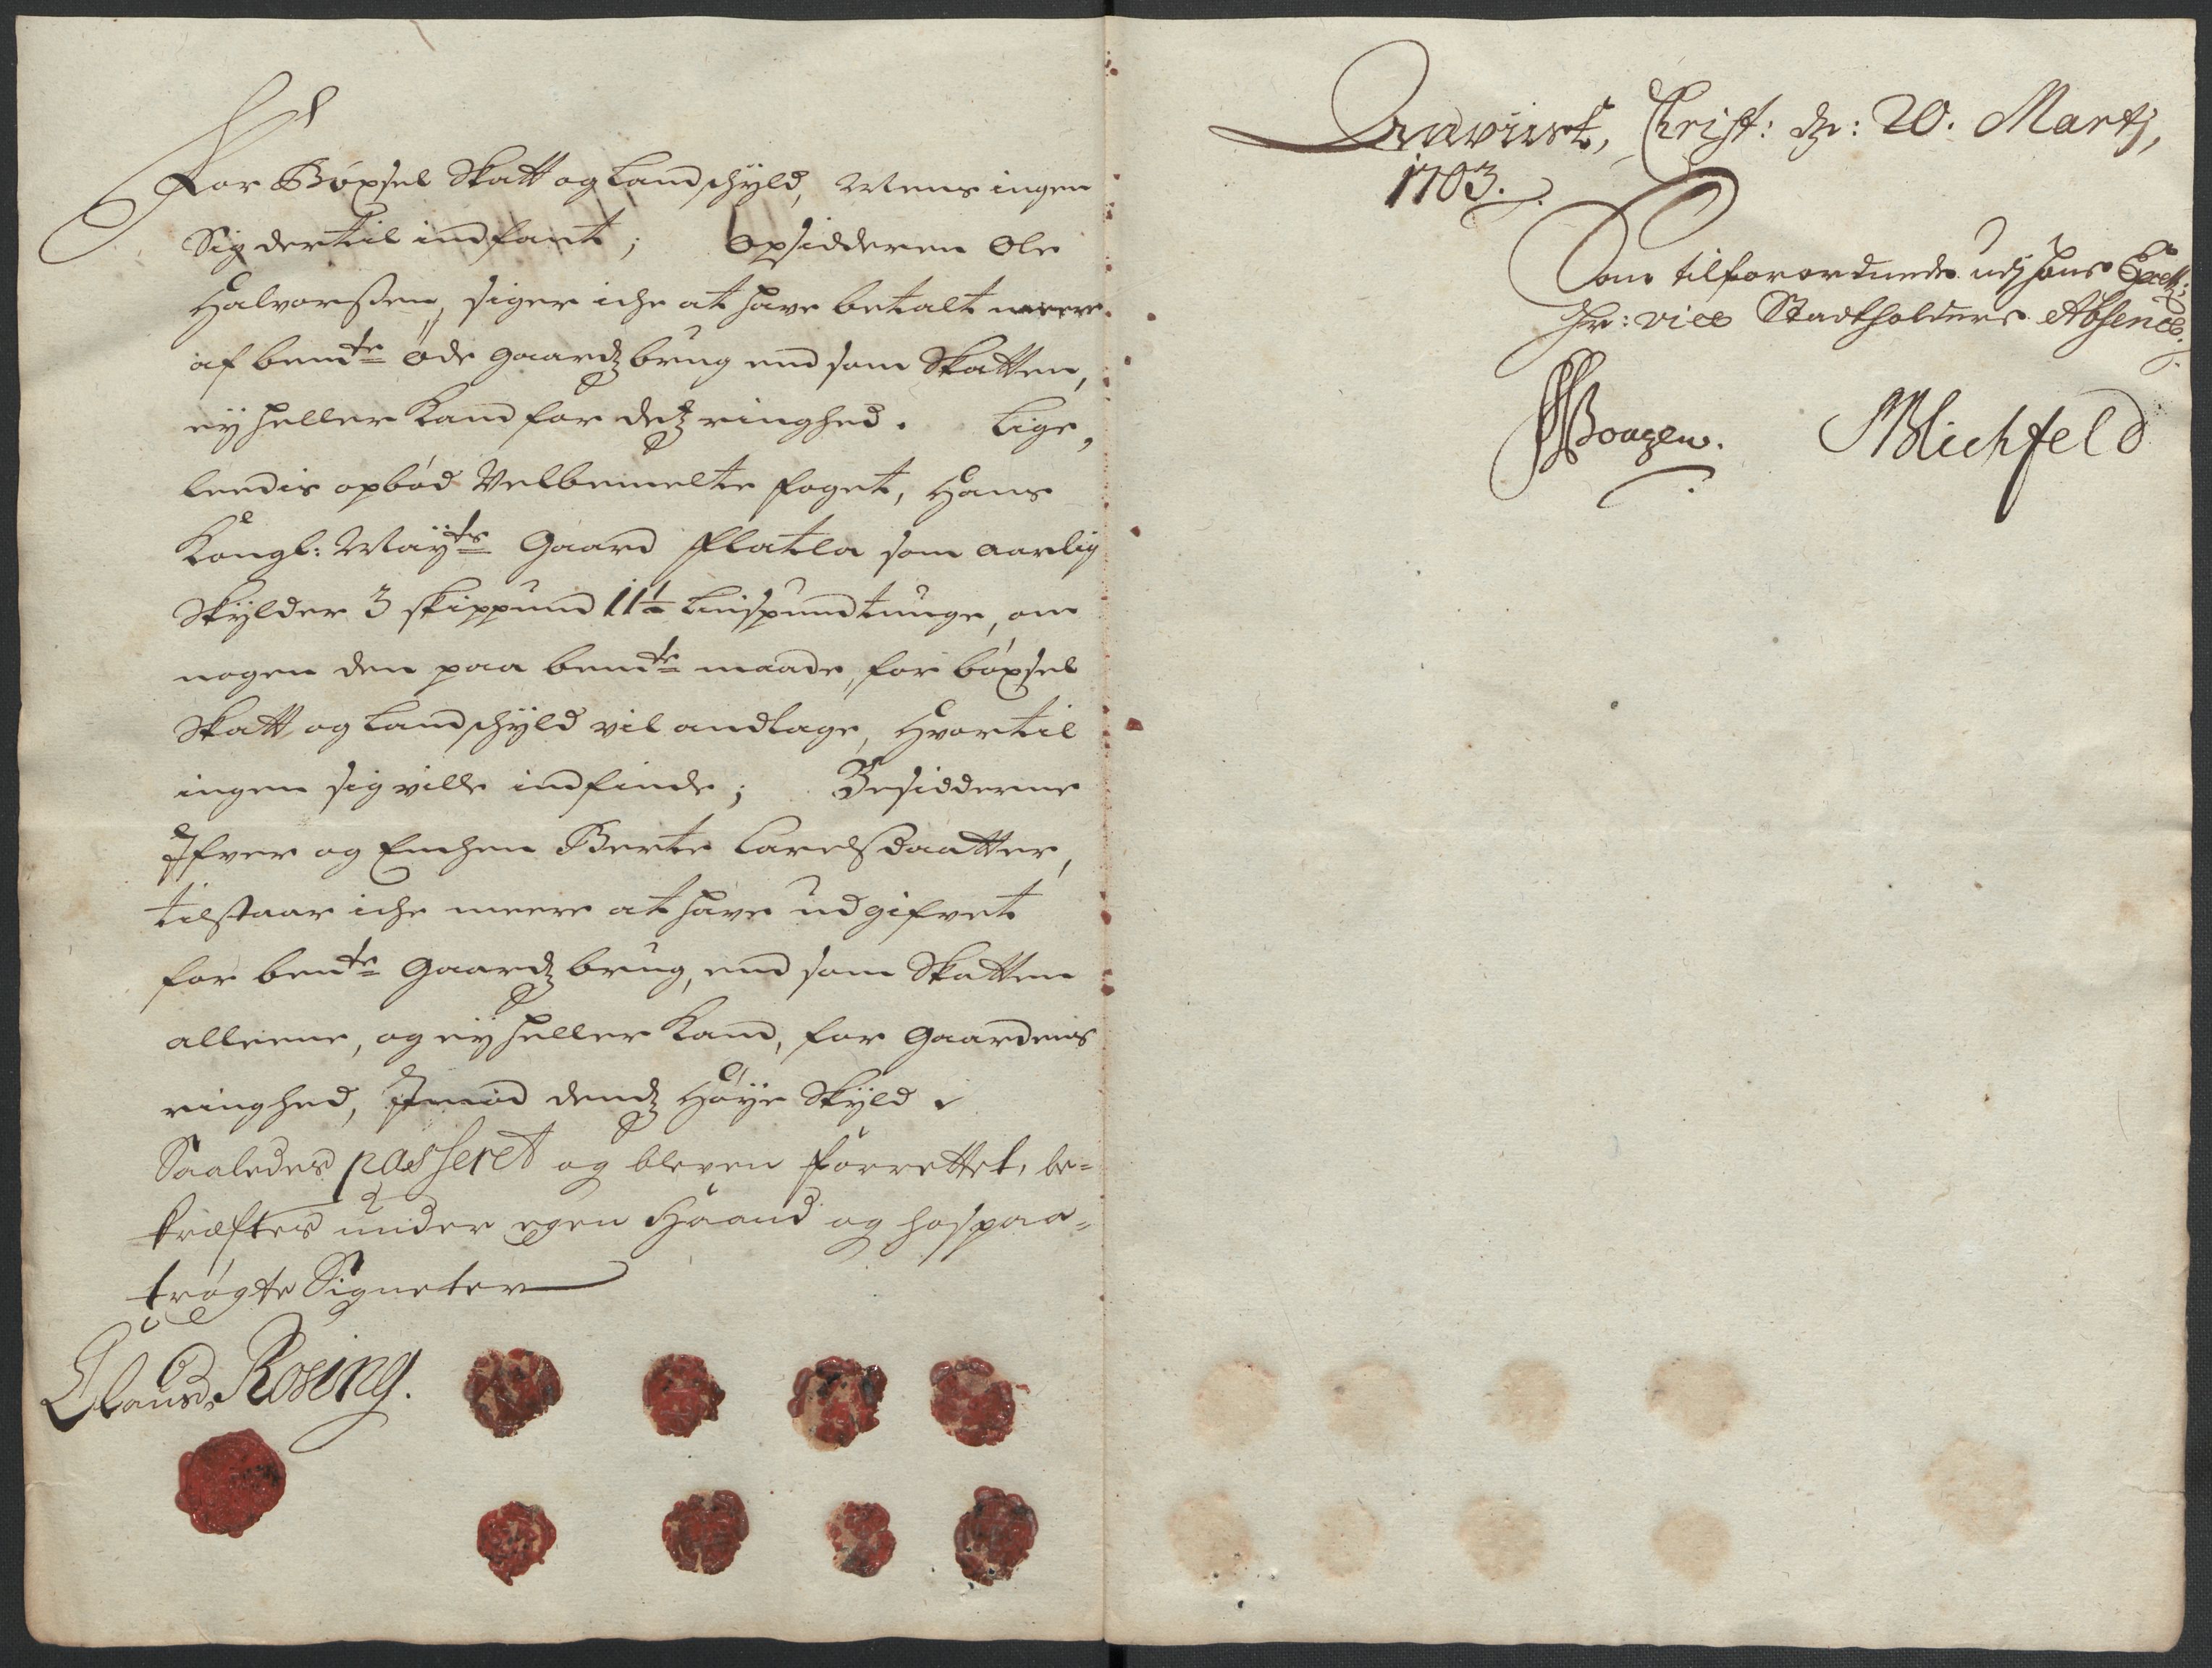 For Böxsel Skatt og Landschyld, Mens ingen
Sig dertil indfant; Opsidderen Ole
Halvorsen, siger iche at have betalt meere
af bemte öde gaardz brug end som Skatten,
ey heller Kand for detz ringhed. Lige,
leedis opböd Velbemelte foget, Hans
Kongl: Mayts Gaard Flatla som aarlig
Skylder 3 skippund 11½ Lispund tunge, om
nogen den paa bemte maade, for böxsel
Skatt og Landschyld vil andtage, Hvortil
ingen sig ville indfinde; Besidderne
Ifver og Enchen Berte Carelsdaatter,
tilstaar iche meere at have udgifvet
for bemte Gaardz brug, end som Skatten
alleene, og ey heller Kand, for Gaardens
ringhed, Imod dendz Höye Skyld.
Saaledes passeret og bleven forrettet, be-
kræftes under egen Haand og hospaa-
trögte Signeter
Claus Rosing.
Qvaviist, Christ: dn: 20. Martz,
1703.
Som tilforordnede udj hans Excell:
Hr: vice Stadtholders Absence.
Blichfeld